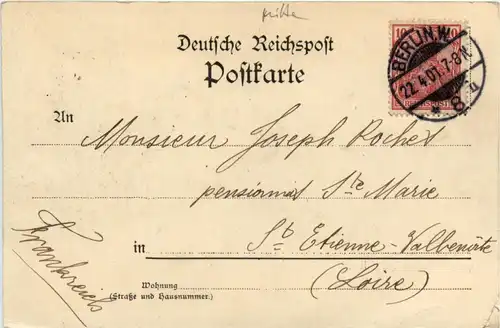 Deutsche Reichspost
Postkarte
10
BERLIN.W.
22.4.01.7-8N.
8
REICHSPOST
An Monsieur Joseph Rochet
pensionnat Ste Marie
in St Etienne-Valbenoîte
(Loire)
Wohnung
(Straße und Hausnummer.)
Frankreich